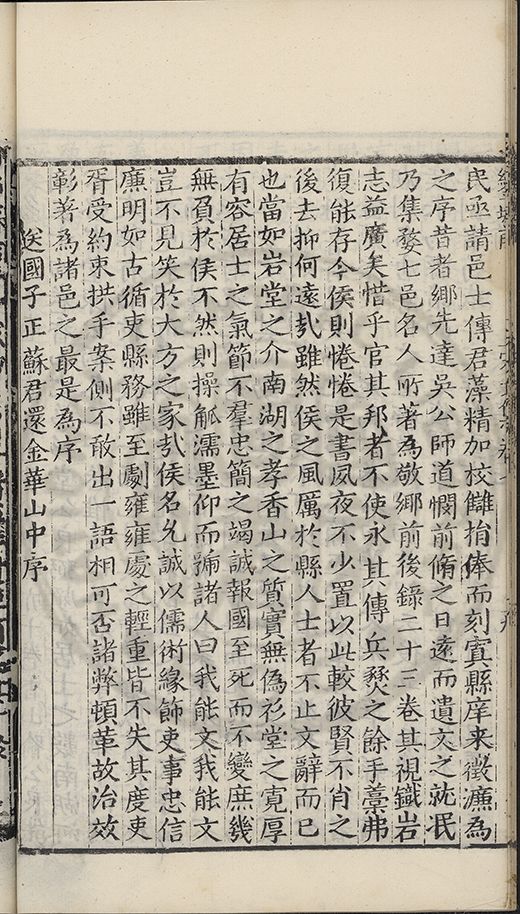 民亟請邑士傳君藻精加校讎捐俸而刻寘縣庠来徵濂為
之序昔者鄉先達吳公師道憫前脩之日遠而遺文之就泯
乃集婺七邑名人所著為敬鄉前後錄二十三卷其視鐵岩
志益廣矣惜乎官其邦者不使永其傳兵燹之餘手藁弗
復能存今侯則惓惓是書夙夜不少置以此較彼賢不肖之
後去抑何遠㢤雖然侯之風厲於縣人士者不止文辭而已
也當如岩堂之介南湖之孝香山之質實無偽衫堂之寬厚
有容居士之氣節不羣忠簡之竭誠報國至死而不變庶幾
無負於侯不然則操觚濡墨仰而號諸人曰我能文我能文
豈不見笑於大方之家㢤侯名允誠以儒術緣飾吏事忠信
廉明如古循吏縣務雖至劇雍雍處之輕重皆不失其度吏
胥受約束拱手案側不敢出一語相可否諸弊頓革故治效
彰著為諸邑之最是為序
送國子正蘇君還金華山中序